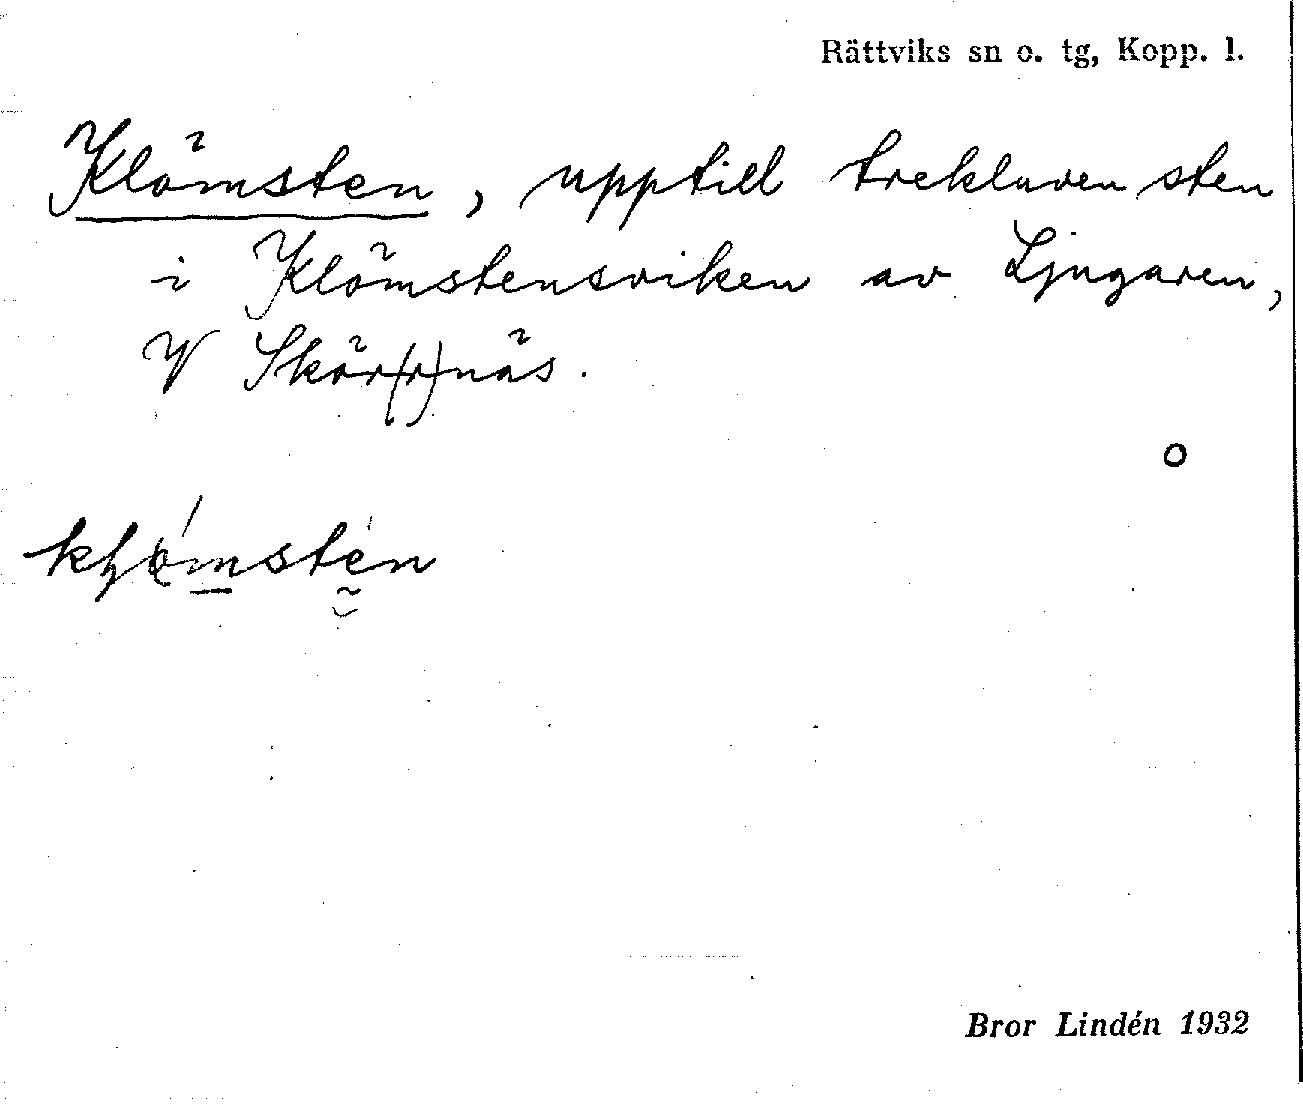 Rättviks sn o. tg, Kopp. l.
Klömsten, upptill trekluven sten
i Klömstensviken av Ljugaren,
V Skör(r)näs.
o
Bror Lindén 1932